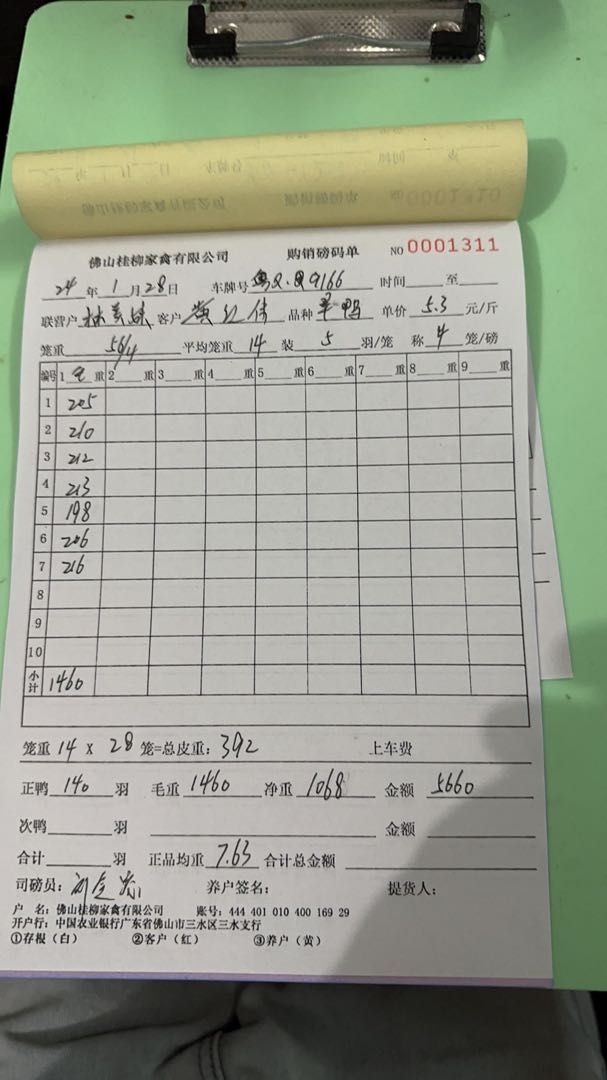 佛山桂柳家禽有限公司 购销磅码单 NO 0001311
24年1月28日 车牌号粤Q·Q9166 时间 至
联营户 林美妹 客户 黄红伟 品种 鸭 单价 5.3 元/斤
笼重 56/4 平均笼重 14 装 5 羽/笼 称 4 笼/磅
编号 1 毛 重 2 重 3 重 4 重 5 重 6 重 7 重 8 重 9 重
1 205
2 210
3 212
4 213
5 198
6 206
7 216
8
9
10
小计 1460
笼重 14 X 28 笼=总皮重: 392 上车费
正鸭 140 羽 毛重 1460 净重 1068 金额 5660
次鸭 羽 金额
合计 羽 正品均重 7.63 合计总金额
司磅员: 养户签名: 提货人:
户 名: 佛山桂柳家禽有限公司 账号: 444 401 010 400 169 29
开户行: 中国农业银行广东省佛山市三水区三水支行
①存根(白) ②客户(红) ③养户(黄)